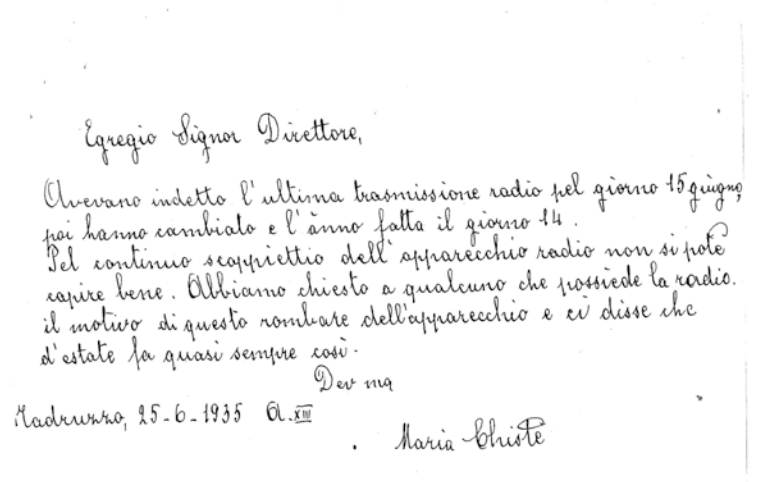 Egregio Signor Direttore,
Avevano indetto l'ultima trasmissione radio pel giorno 15 giugno,
poi hanno cambiato e l'ànno fatta il giorno 14.
Pel continuo scoppiettio dell'apparecchio radio non si potè
capire bene. Abbiamo chiesto a qualcuno che possiede la radio.
il motivo di questo rombare dell'apparecchio e ci disse che
d'estate fa quasi sempre così.
Dev ma
Madruzzo, 25-6-1935 A. XIII
Maria Chistè